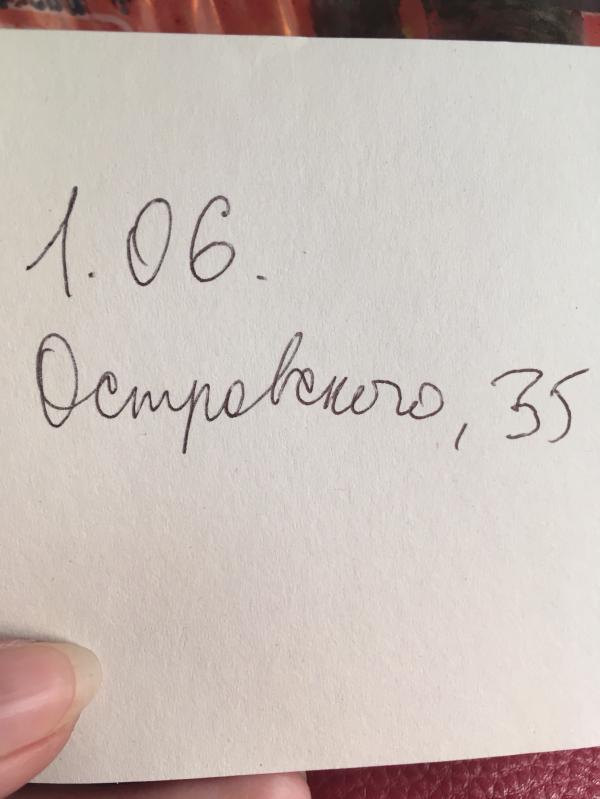 1.06.
Островского, 35